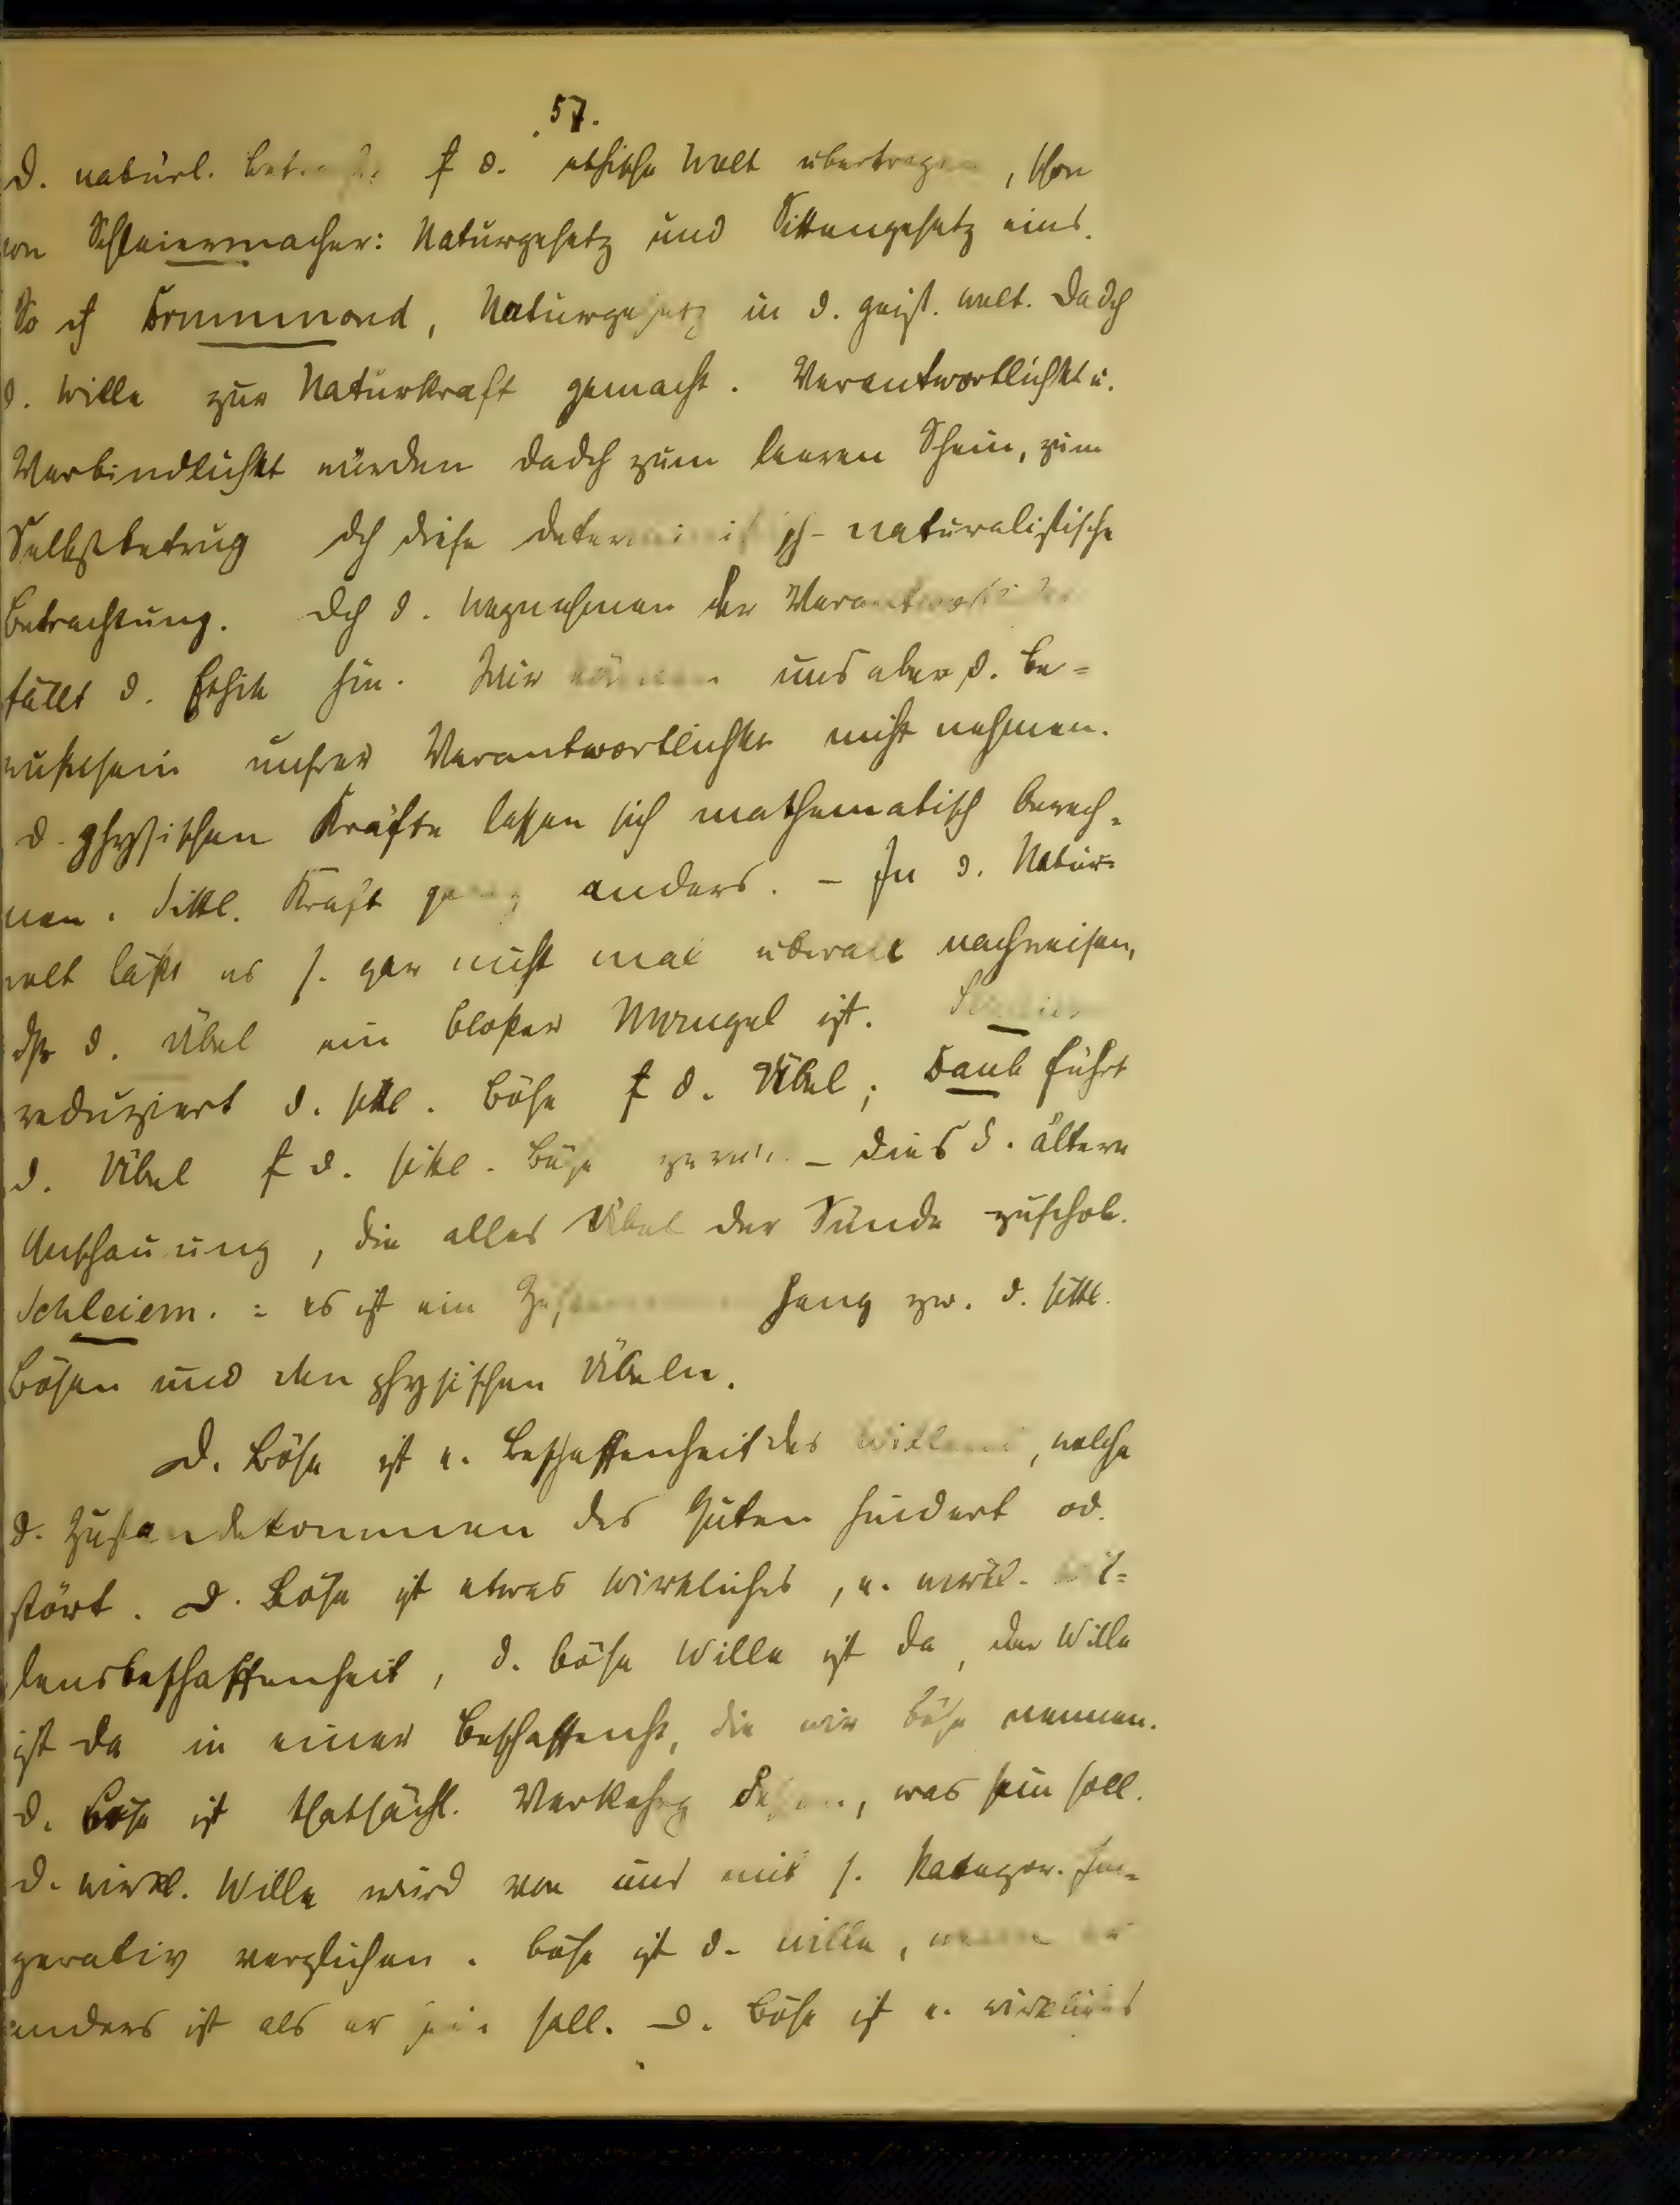 57.
D. natürl. f d. ethische Welt übertragen, schon
von Schleiermacher: Naturgesetz und Sittengesetz eins.
So ist Drummond, Naturgesetz in d. geist. Welt. Dadch
d. Wille zur Naturkraft gemacht. Verantwortlichkt u.
Verbindlichkt würden dadch zum leeren Schein, zum
Selbstbetrug dch diese deterministisch-naturalistische
Betrachtung. Dch d. Wegnehmen der
fällt d. Ethik hin. Wir können uns aber d. Be-
wußtsein unsrer Verantwortlichkt nicht nehmen.
D. physischen Kräfte lassen sich mathematisch berech-
nen. Sittl. Kraft ganz anders. - In d. Natur-
welt läßt es s. gar nicht mal überall nachweisen,
dß d. Übel ein bloßer Mangel ist.
reduziert d. sittl. Böse f d. Übel; Daub führt
d. Übel f d. sittl. Böse zurück - dies d. ältere
Anschauung, die alles Übel der Sünde zuschob.
Schleierm.: es ist ein Zusammenhang zw. d. sittl.
Bösen und den physischen Übeln.
D. Böse ist e. Beschaffenheit des Willens, welche
d. Zustandekommen des Guten hindert od.
stört. D. Böse ist etwas Wirkliches, e. wirkl. Wil-
lensbeschaffenheit, d. böse Wille ist da, der Wille
ist da in einer Beschaffenht, die wir böse nennen.
D. Böse ist thatsächl. Verkehrg dessen, was sein soll.
D. wirkl. Wille wird von uns mit s. kategor. Im-
perativ verglichen. Böse ist d. Wille, wenn er
anders ist als er sein soll. D. Böse ist e. wirkliches